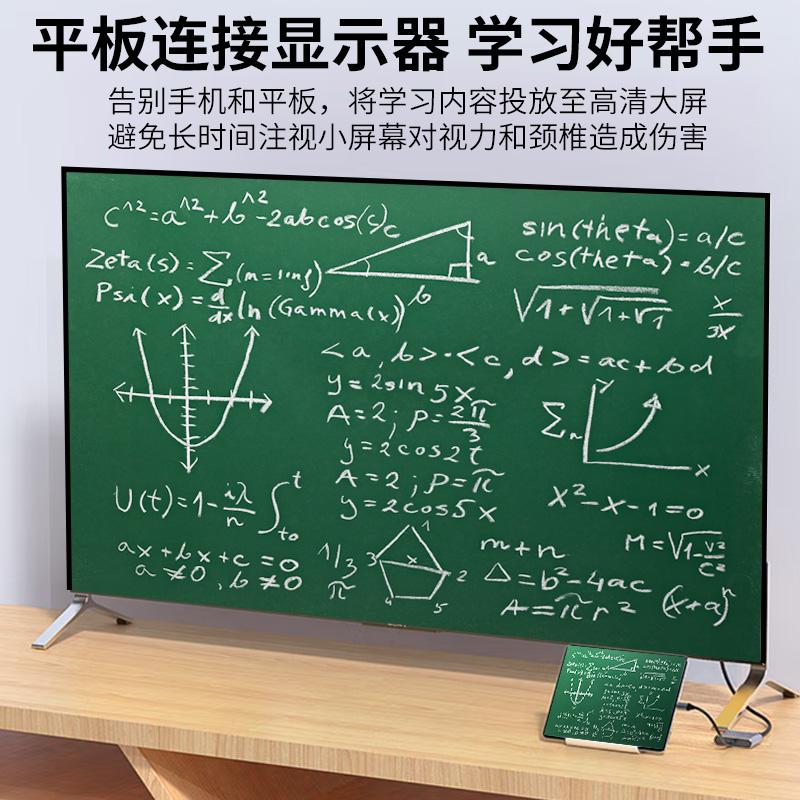 平板连接显示器 学习好帮手
告别手机和平板，将学习内容投放至高清大屏
避免长时间注视小屏幕对视力和颈椎造成伤害
c^2=a^2+b^2-2abcos(c)
c
a
b
sin(theta)=a/c
cos(theta)=b/c
Zeta(s)=∑(m=1inf)
Psi(x)=d/dx ln(Gamma(x))
√1+√1+√1
x/3x
<a,b>·<c,d>=ac+bd
y=2sin5x
A=2; p=2π/3
y=2cos2t
A=2; p=π
y=2cos5x
∑n
y
x
U(t)=1-iλ/n ∫ t to
x²-x-1=0
ax+bx+c=0
a≠0, b≠0
1/3
π
1
3
x
2
4
5
m+n
M=√1-v²/c²
△=b²-4ac
A=πr²
(x+a)ⁿ